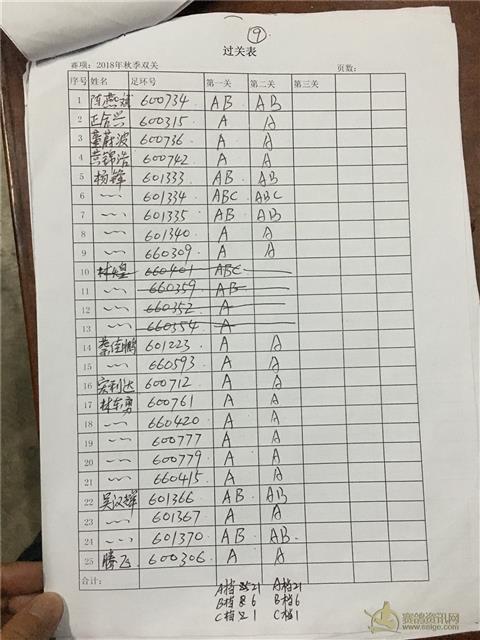 ⑨
过关表
赛项：2018年秋季双关 页数：
序号 姓名 足环号 第一关 第二关 第三关
1 陈燕斌 600734 AB AB
2 正合兴 600315 A A
3 董蔚波 600736 A A
4 黄锦浩 600742 A A
5 杨锋 601333 AB AB
6 〃 601334 ABC ABC
7 〃 601335 AB AB
8 〃 601340 A A
9 〃 660309 A A
10 林煌 660401 ABC
11 〃 660359 AB
12 〃 660352 A
13 〃 660354 A
14 蔡佳鹏 601223 A A
15 〃 660593 A A
16 宏利达 600712 A A
17 林东勇 600761 A A
18 〃 660420 A A
19 〃 600777 A A
20 〃 600779 A A
21 〃 660415 A A
22 吴汉辉 601366 AB AB
23 〃 601367 A A
24 〃 601370 AB AB
25 腾飞 600306 A A
合计：
A档 21 A档 21
B档 6 B档 6
C档 1 C档 1
赛鸽资讯网
www.saige.com